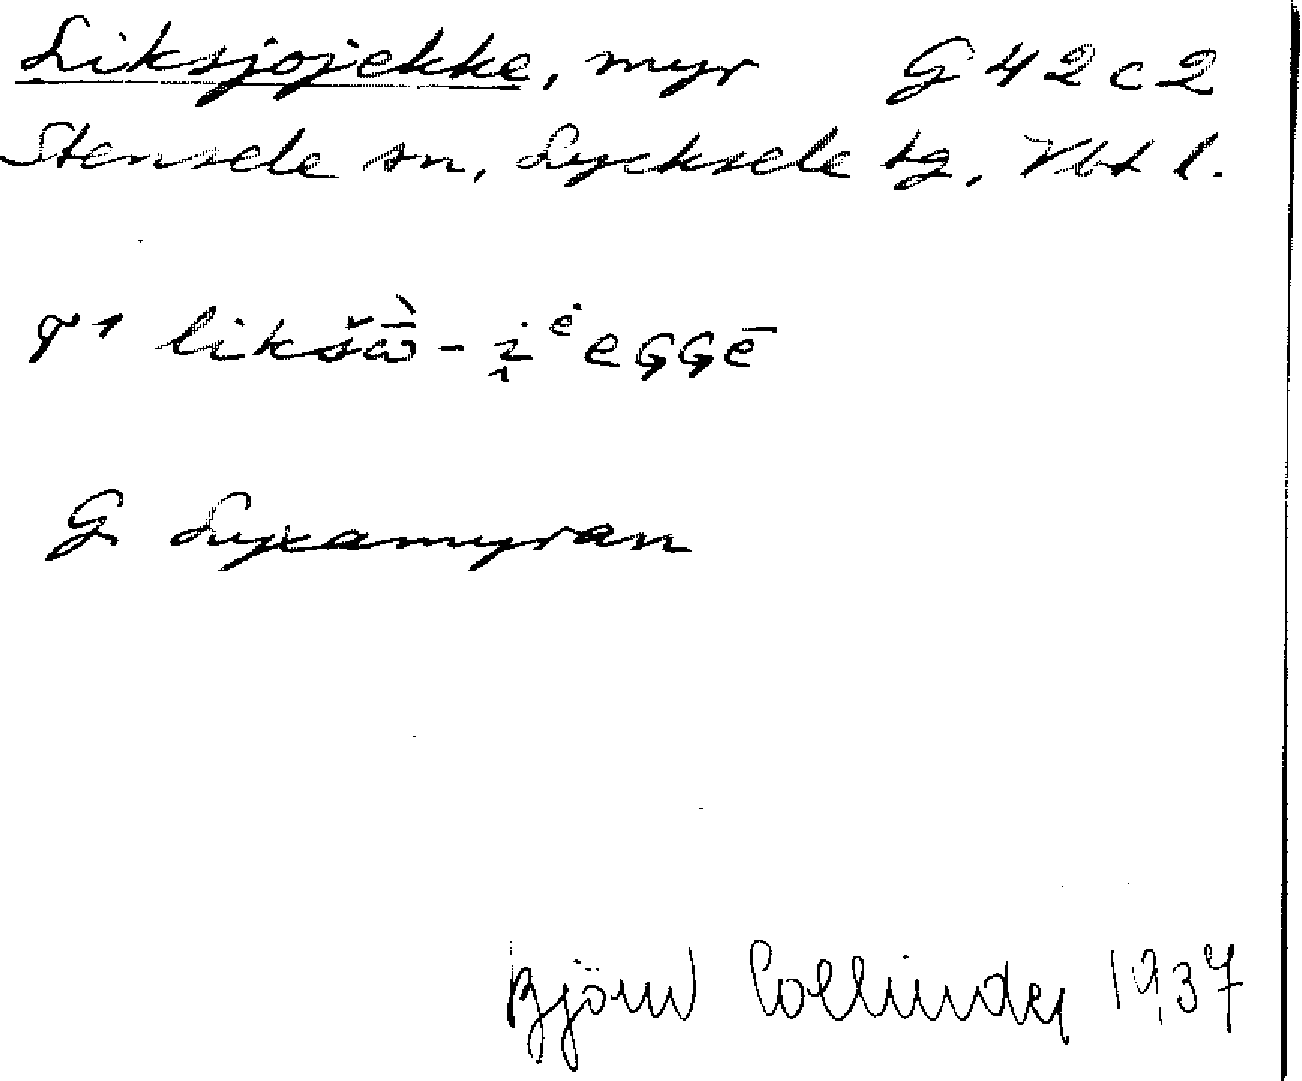 Liksjojekke, myr G 42 c 2
Stensele sn, Lycksele tg, Vbt l.
T1 likšω̄̀-i̯ėeGGē
G Lyxamyran
Björn Collinder 1937